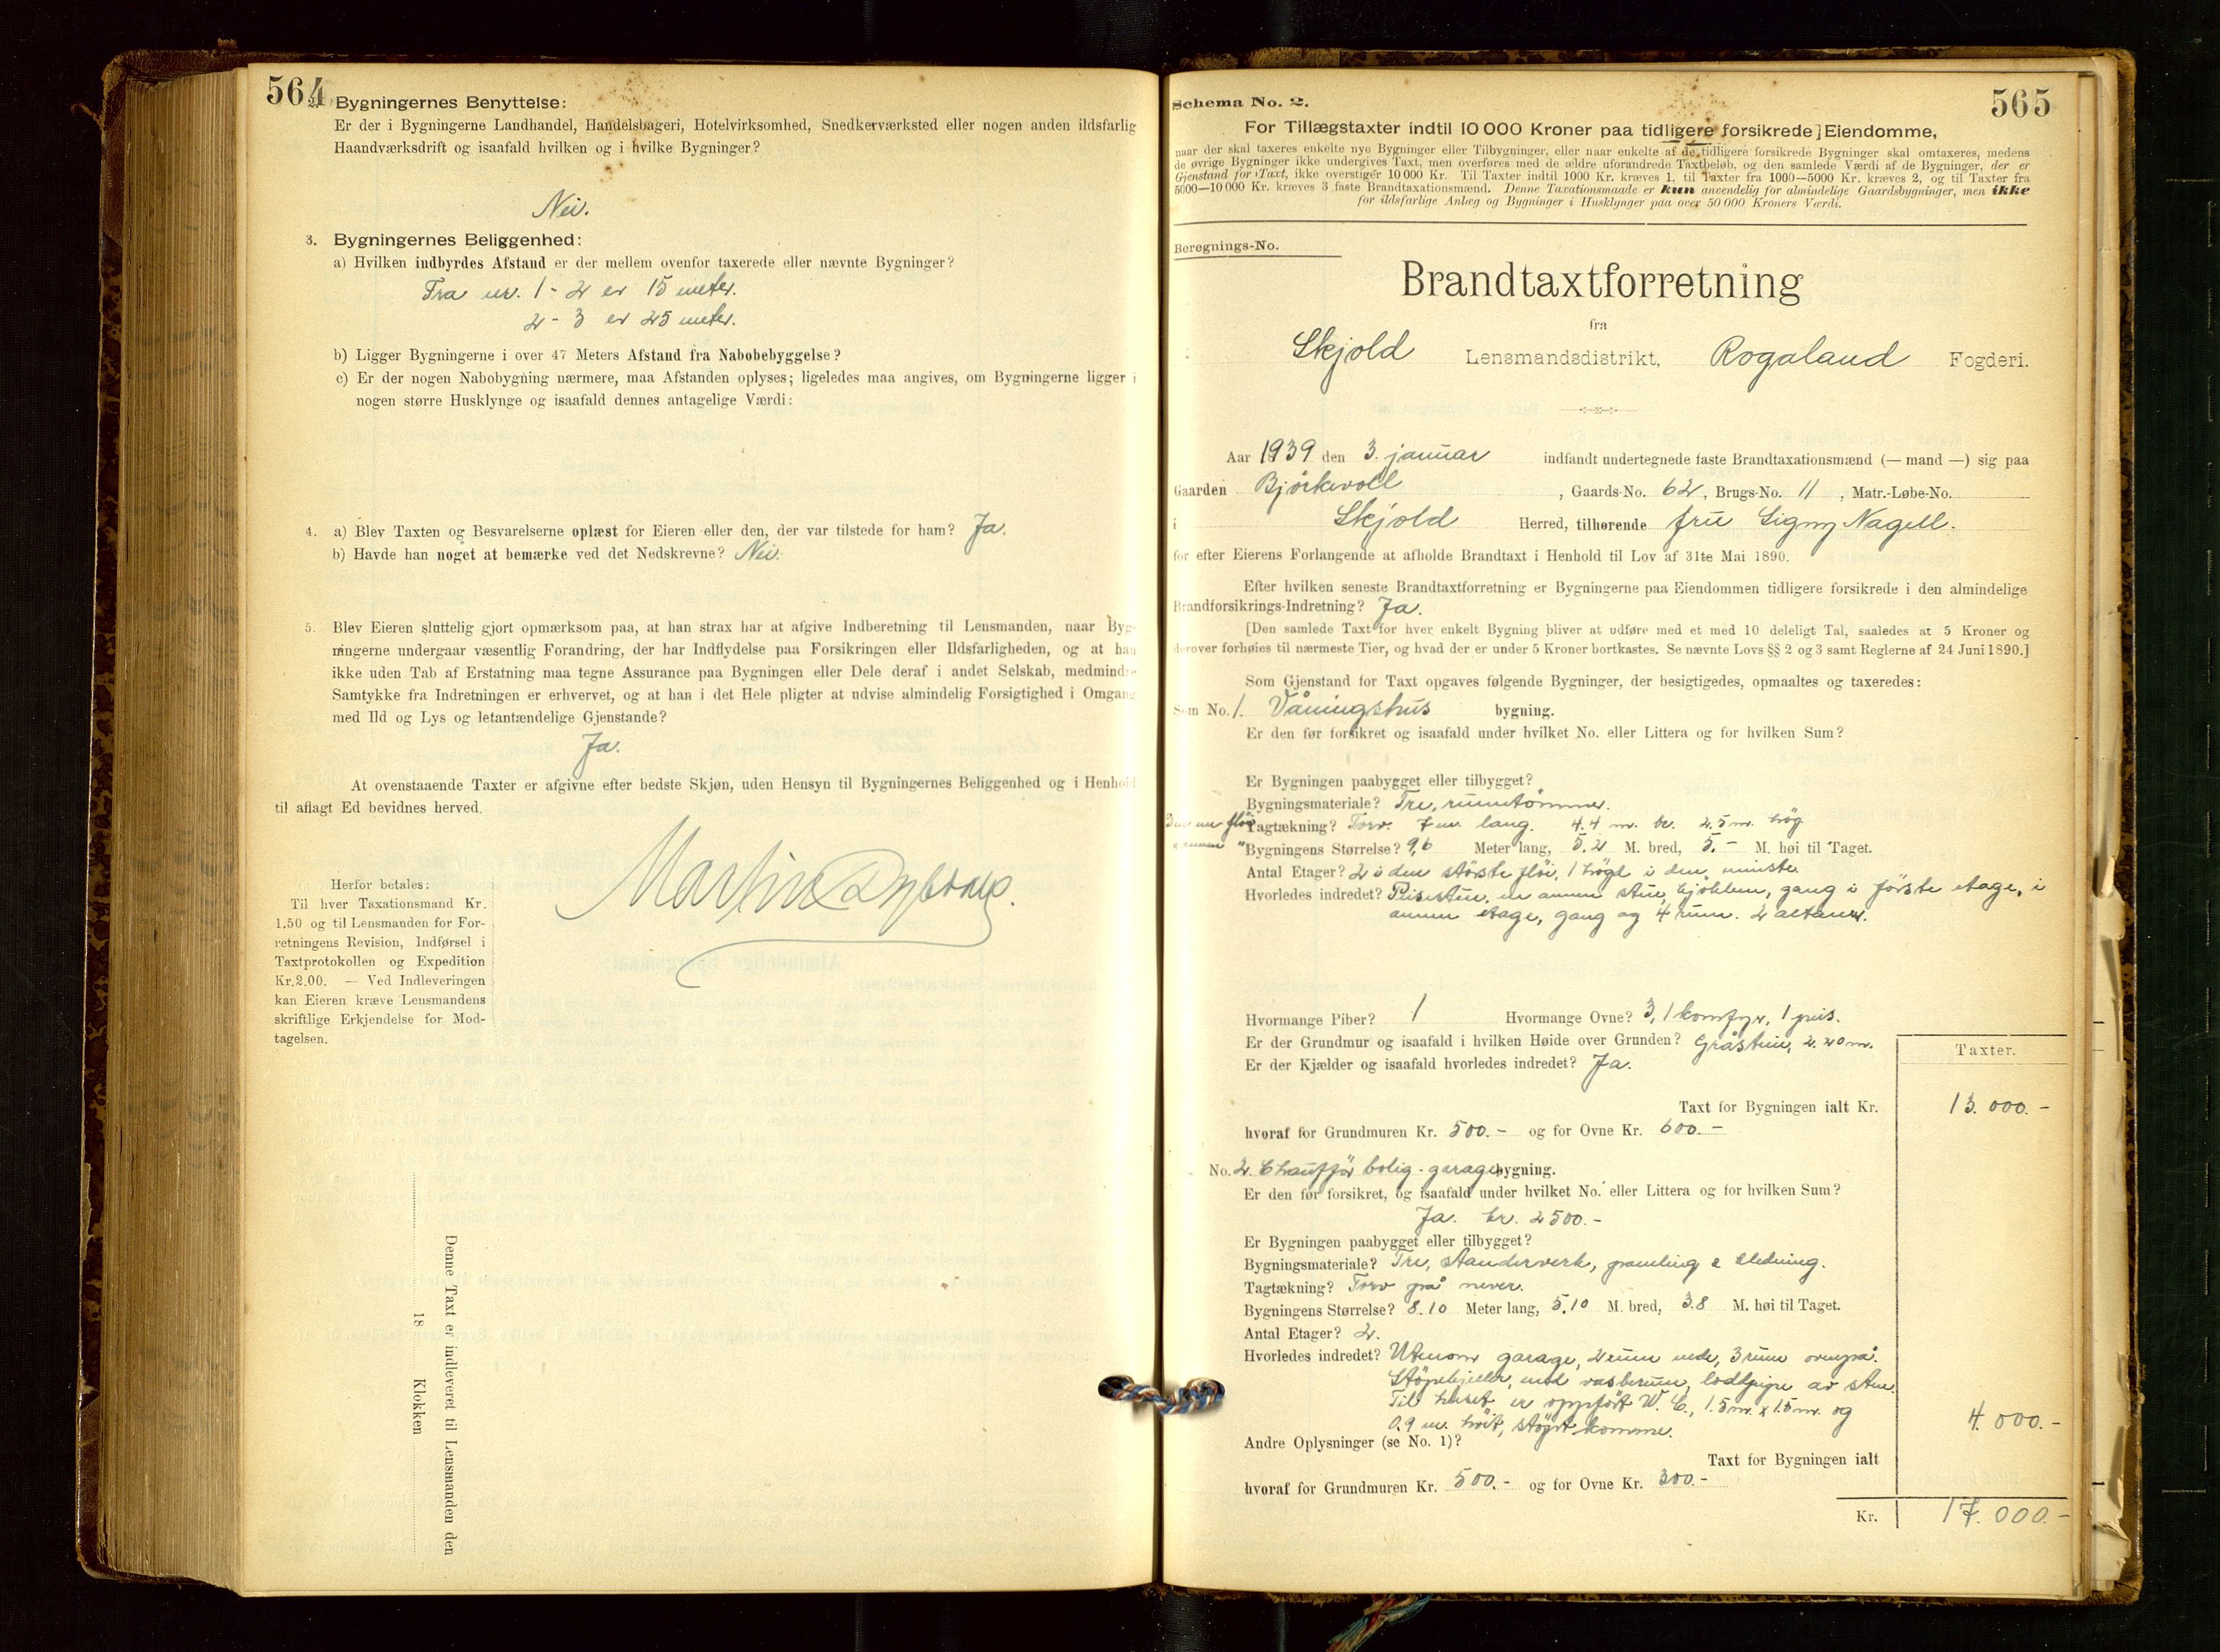 564
2. Bygningernes Benyttelse:
Er der i Bygningerne Landhandel, Handelsbageri, Hotelvirksomhed, Snedkerværksted eller nogen anden ildsfarlig
Haandværksdrift og isaafald hvilken og i hvilke Bygninger?
Nei.
3. Bygningernes Beliggenhed:
a) Hvilken indbyrdes Afstand er der mellem ovenfor taxerede eller nævnte Bygninger?
Fra nr. 1 - 2 er 15 meter.
2 - 3 er 25 meter.
b) Ligger Bygningerne i over 47 Meters Afstand fra Nabobebyggelse?
c) Er der nogen Nabobygning nærmere, maa Afstanden oplyses; ligeledes maa angives, om Bygningerne ligger i
nogen større Husklynge og isaafald dennes antagelige Værdi:
4. a) Blev Taxten og Besvarelserne oplæst for Eieren eller den, der var tilstede for ham? Ja.
b) Havde han noget at bemærke ved det Nedskrevne? Nei.
5. Blev Eieren sluttelig gjort opmærksom paa, at han strax har at afgive Indberetning til Lensmanden, naar Byg-
ningerne undergaar væsentlig Forandring, der har Indflydelse paa Forsikringen eller Ildsfarligheden, og at han
ikke uden Tab af Erstatning maa tegne Assurance paa Bygningen eller Dele deraf i andet Selskab, medmindre
Samtykke fra Indretningen er erhvervet, og at han i det Hele pligter at udvise almindelig Forsigtighed i Omgang
med Ild og Lys og letantændelige Gjenstande?
Ja.
At ovenstaaende Taxter er afgivne efter bedste Skjøn, uden Hensyn til Bygningernes Beliggenhed og i Henhold
til aflagt Ed bevidnes herved.
Martin
Herfor betales:
Til hver Taxationsmand Kr.
1.50 og til Lensmanden for For-
retningens Revision, Indførsel i
Taxtprotokollen og Expedition
Kr. 2.00. — Ved Indleveringen
kan Eieren kræve Lensmandens
skriftlige Erkjendelse for Mod-
tagelsen.
Denne Taxt er indleveret til Lensmanden den
18 Klokken
565
Schema No. 2.
For Tillægstaxter indtil 10 000 Kroner paa tidligere forsikrede] Eiendomme,
naar der skal taxeres enkelte nye Bygninger eller Tilbygninger, eller naar enkelte af de tidligere forsikrede Bygninger skal omtaxeres, medens
de øvrige Bygninger ikke undergives Taxt, men overføres med de ældre uforandrede Taxtbeløb, og den samlede Værdi af de Bygninger, der er
Gjenstand for Taxt, ikke overstiger 10 000 Kr. Til Taxter indtil 1000 Kr. kræves 1, til Taxter fra 1000—5000 Kr. kræves 2, og til Taxter fra
5000—10 000 Kr. kræves 3 faste Brandtaxationsmænd. Denne Taxationsmaade er kun anvendelig for almindelige Gaardsbygninger, men ikke
for ildsfarlige Anlæg og Bygninger i Husklynger paa over 50 000 Kroners Værdi.
Beregnings-No.
Brandtaxtforretning
fra
Skjold Lensmandsdistrikt, Rogaland Fogderi.
Aar 1939 den 3. januar indfandt undertegnede faste Brandtaxationsmænd (— mand —) sig paa
Gaarden Bjørkevoll, Gaards-No. 62, Brugs-No. 11, Matr.-Løbe-No.
i Skjold Herred, tilhørende fru Signy Nagell.
for efter Eierens Forlangende at afholde Brandtaxt i Henhold til Lov af 31te Mai 1890.
Efter hvilken seneste Brandtaxtforretning er Bygningerne paa Eiendommen tidligere forsikrede i den almindelige
Brandforsikrings-Indretning? Ja.
[Den samlede Taxt for hver enkelt Bygning bliver at udføre med et med 10 deleligt Tal, saaledes at 5 Kroner og
derover forhøies til nærmeste Tier, og hvad der er under 5 Kroner bortkastes. Se nævnte Lovs §§ 2 og 3 samt Reglerne af 24 Juni 1890.]
Som Gjenstand for Taxt opgaves følgende Bygninger, der besigtigedes, opmaaltes og taxeredes:
Som No. 1. Våningshus bygning.
Er den før forsikret og isaafald under hvilket No. eller Littera og for hvilken Sum?
Er Bygningen paabygget eller tilbygget?
Bygningsmateriale? Tre, rundtømmer.
Den ene fløi Tagtækning? Torv. 7 m. lang. 4.4 m. br. 2.5 m. høg
" annen " Bygningens Størrelse? 9,6 Meter lang, 5.2 M. bred, 5.- M. høi til Taget.
Antal Etager? 2 i den største fløi, 1 høgd i den minste.
Hvorledes indredet? Peisestue, en annen stue, kjøkken, gang i første etage, i
annen etage, gang og 4 rum. 2 altaner.
Hvormange Piber? 1 Hvormange Ovne? 3, 1 komfyr, 1 peis.
Er der Grundmur og isaafald i hvilken Høide over Grunden? Gråstein, 2.20 m.
Er der Kjælder og isaafald hvorledes indredet? Ja.
Taxter.
Taxt for Bygningen ialt Kr. 13.000.-
hvoraf for Grundmuren Kr. 500.- og for Ovne Kr. 600.-
No. 2. Chauffør bolig - garage bygning.
Er den før forsikret, og isaafald under hvilket No. eller Littera og for hvilken Sum?
Ja. kr. 2500.-
Er Bygningen paabygget eller tilbygget?
Bygningsmateriale? Tre, standerverk, paneling & kledning.
Tagtækning? Torv på never.
Bygningens Størrelse? 8.10 Meter lang, 5.10 M. bred, 3.8 M. høi til Taget.
Antal Etager? 2.
Hvorledes indredet? Utenom garage, 2 rum nede, 3 rum ovenpå.
Støpekjeller, med vaskerum, loddpipe av sten.
Til huset er oppført W. C., 1.5 m. x 1.5 m. og
0.9 m. høit, støpt komme.
4.000.-
Andre Oplysninger (se No. 1)?
Taxt for Bygningen ialt
hvoraf for Grundmuren Kr. 500.- og for Ovne Kr. 300.-
Kr. 17.000.-